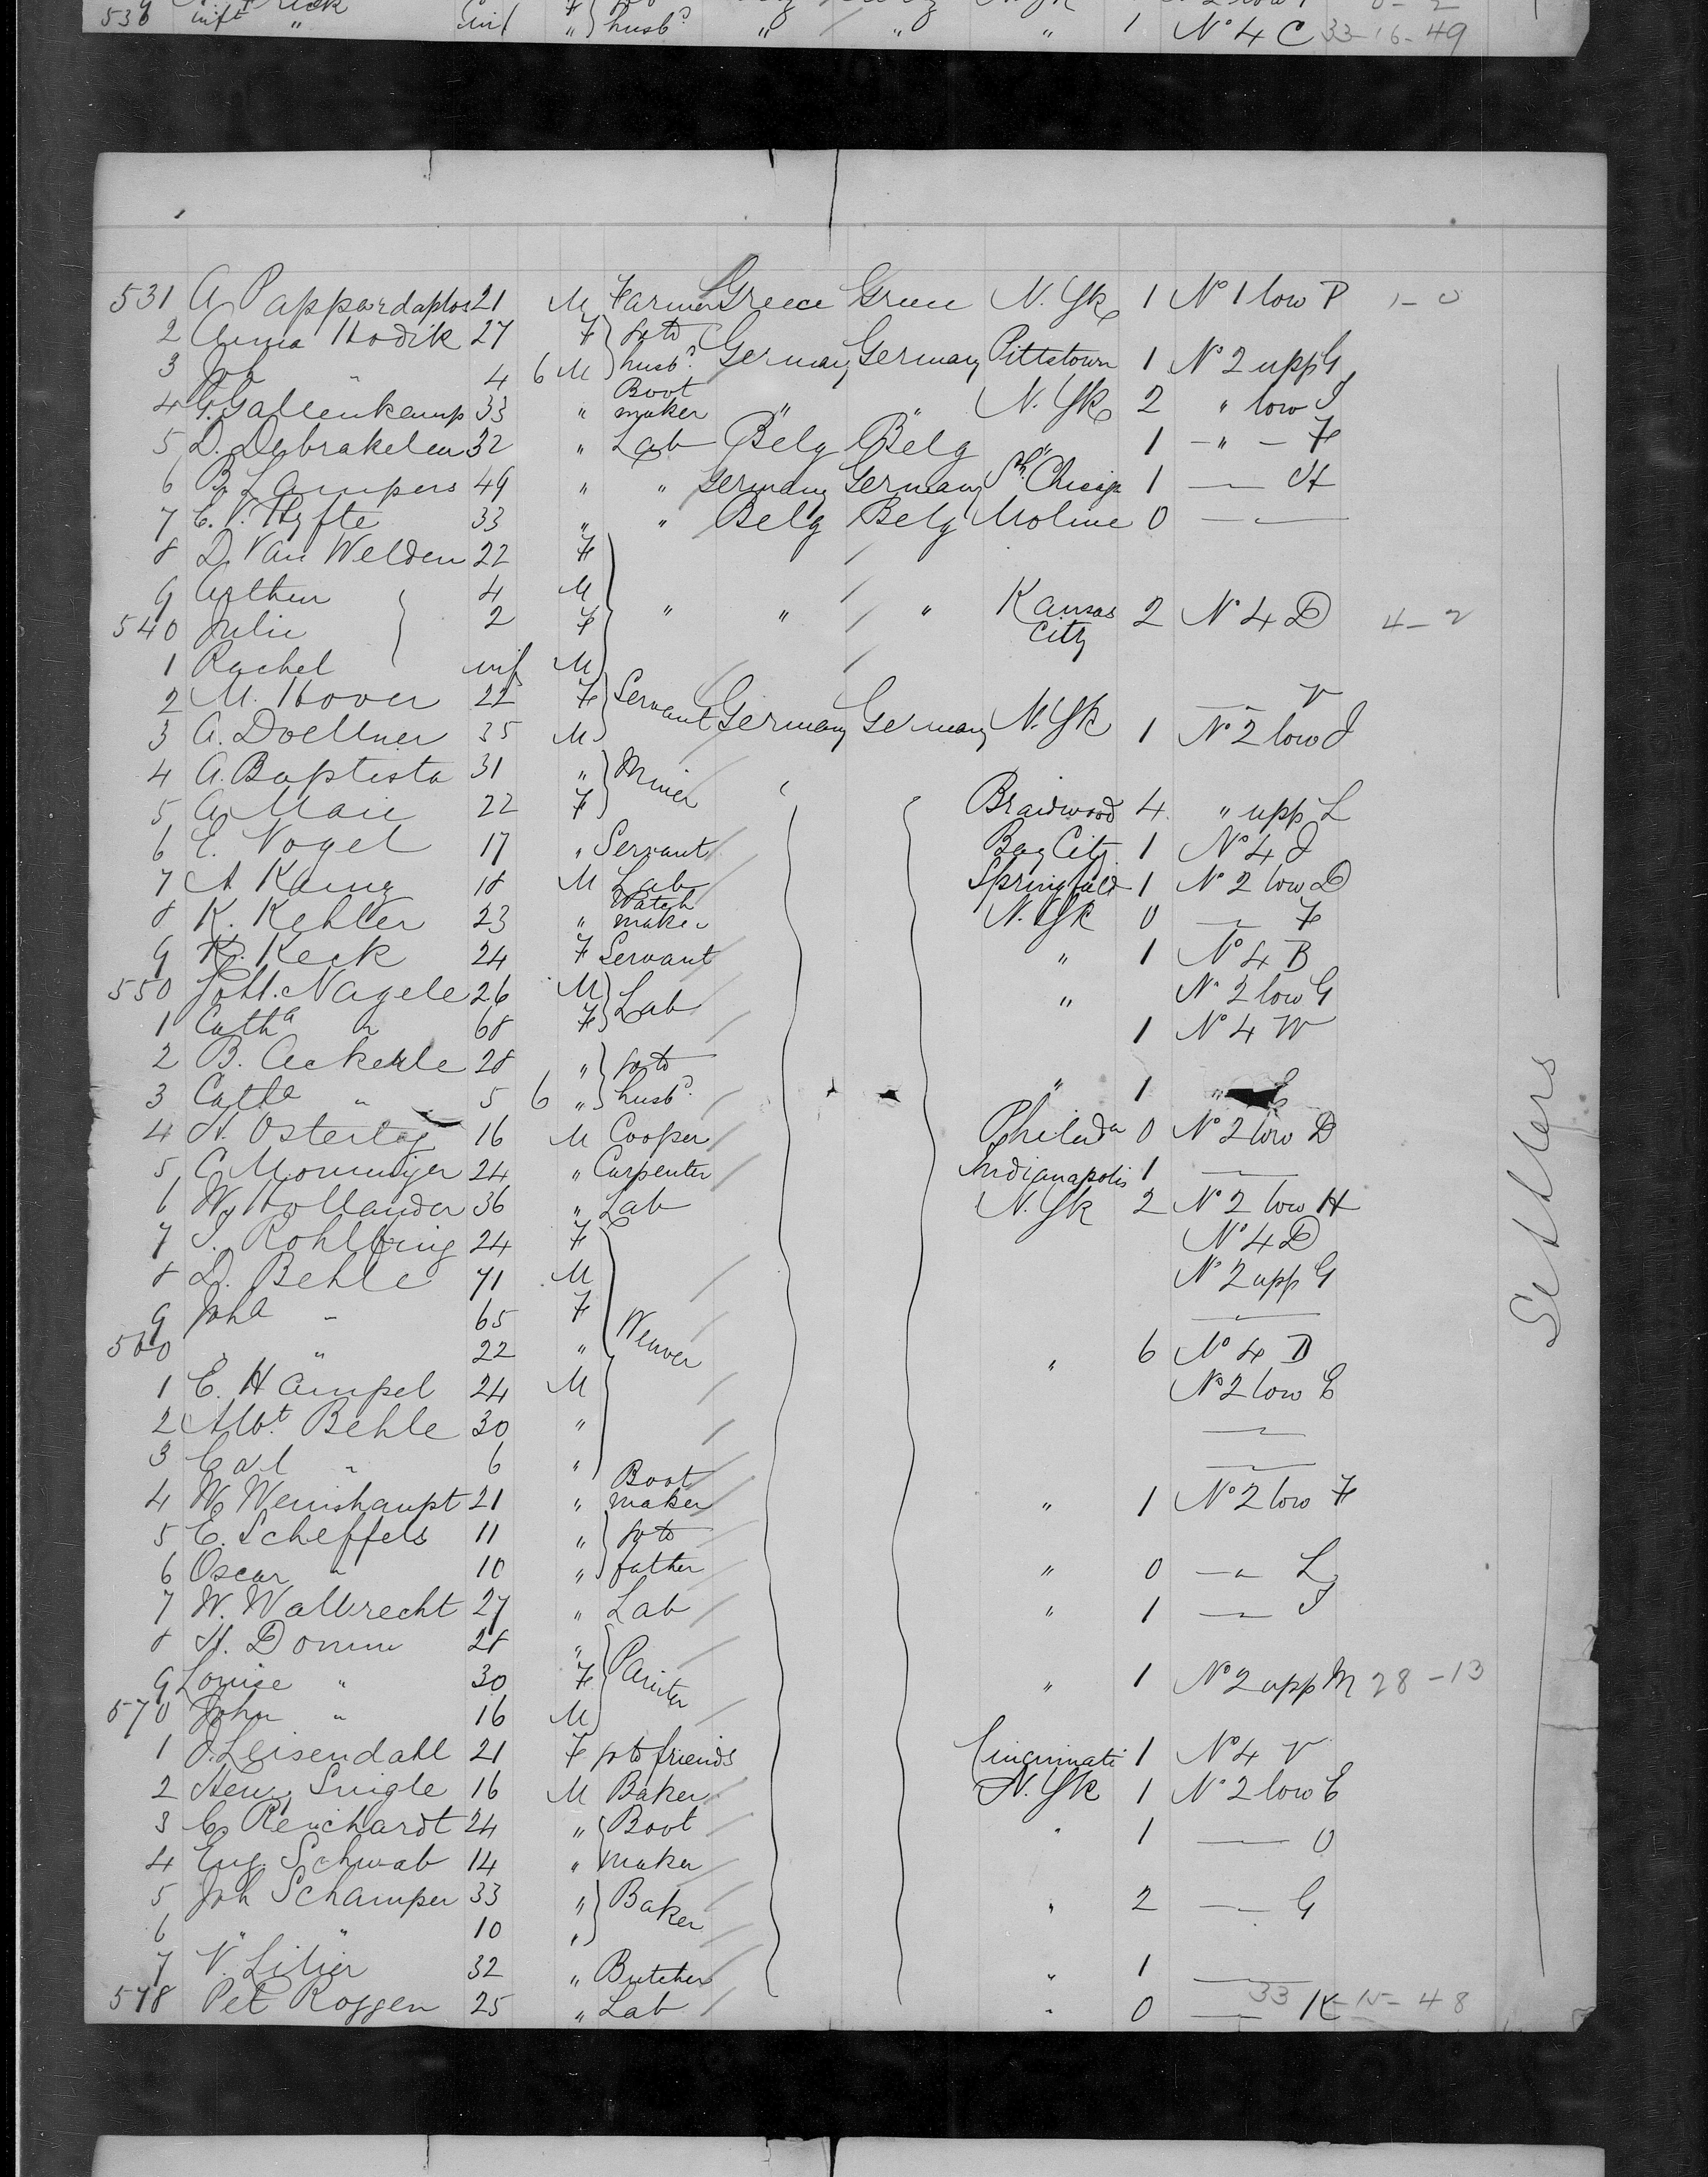 536 inft " inf " husb? " " " 1 No 4 C 33-16-49
531 A Pappardaplos 21 M Farmer Greece Greece N. Yk 1 No 1 low P 1-0
2 Anna Hodik 27 F go to
3 Joh " 4 6 M husb? Germany Germany Pittstown 1 No 2 upp G
4 G. Gallenkamp 33 " Boot maker " " N. Yk 2 " low I
5 D. Debrakeleu 32 " Lab Belg Belg " 1 - " - F
6 B. Lampers 49 " " Germany Germany Sth Chicago 1 — H
7 C. V. Hyfte 33 " " Belg Belg Moline 0 —
8 D. Van Welden 22 F
9 Arthur 4 M
540 Julie 2 F " " " Kansas City 2 No 4 D 4-2
1 Rachel inf M
2 M. Hover 22 F Servant V
3 A. Doellner 35 M Germany Germany N. Yk 1 No 2 low I
4 A. Baptista 31 " Miner
5 A. Marie 22 F Braidwood 4 " upp L
6 E. Vogel 17 " Servant Bay City 1 No 4 I
7 A Kaing 18 M Lab Springfield 1 No 2 low D
8 K. Kehler 23 " Watch maker N. Yk 0 — F
9 K. Keck 24 F Servant " 1 No 4 B
550 Joh. Nagele 26 M Lab " No 2 low G
1 Catha " 68 F 1 No 4 W
2 B. Ackerle 28 " go to
3 Catha " 5 6 " husb? " 1 "
4 H. Ostertag 16 M Cooper Philada 0 No 2 low D
5 C Monninger 24 " Carpenter Indianapolis 1 —
6 W. Hollander 36 " Lab N. Yk 2 No 2 low H
7 J. Rohlfing 24 F No 4 D
8 D. Behle 71 M No 2 upp G
9 Joha " 65 F —
560 " " 22 " Weaver " 6 No 4 D
1 E. Hampel 24 M No 2 low E
2 Albt Behle 30 " —
3 Carl " 6 " —
4 W. Weinshaupt 21 " Boot maker " 1 No 2 low F
5 E. Scheffels 11 " go to
6 Oscar " 10 " father " 0 — " L
7 W. Walbrecht 27 " Lab " 1 — I
8 H. Domm 28 "
9 Louise " 30 F Painter " 1 No 2 upp M 28-13
570 John " 16 M
1 J. Leisendahl 21 F go to friends Cincinnati 1 No 4 V
2 Hew. Single 16 M Baker N. Yk 1 No 2 low E
3 C. Reichardt 24 " Boot " 1 — O
4 Eug. Schwab 14 " maker
5 Joh Schamper 33 " Baker " 2 — G
6 " " 10 "
7 V. Litier 32 " Butcher " 1 —
578 Pet Roggen 25 " Lab " 0 — K 33-15-48
Settlers